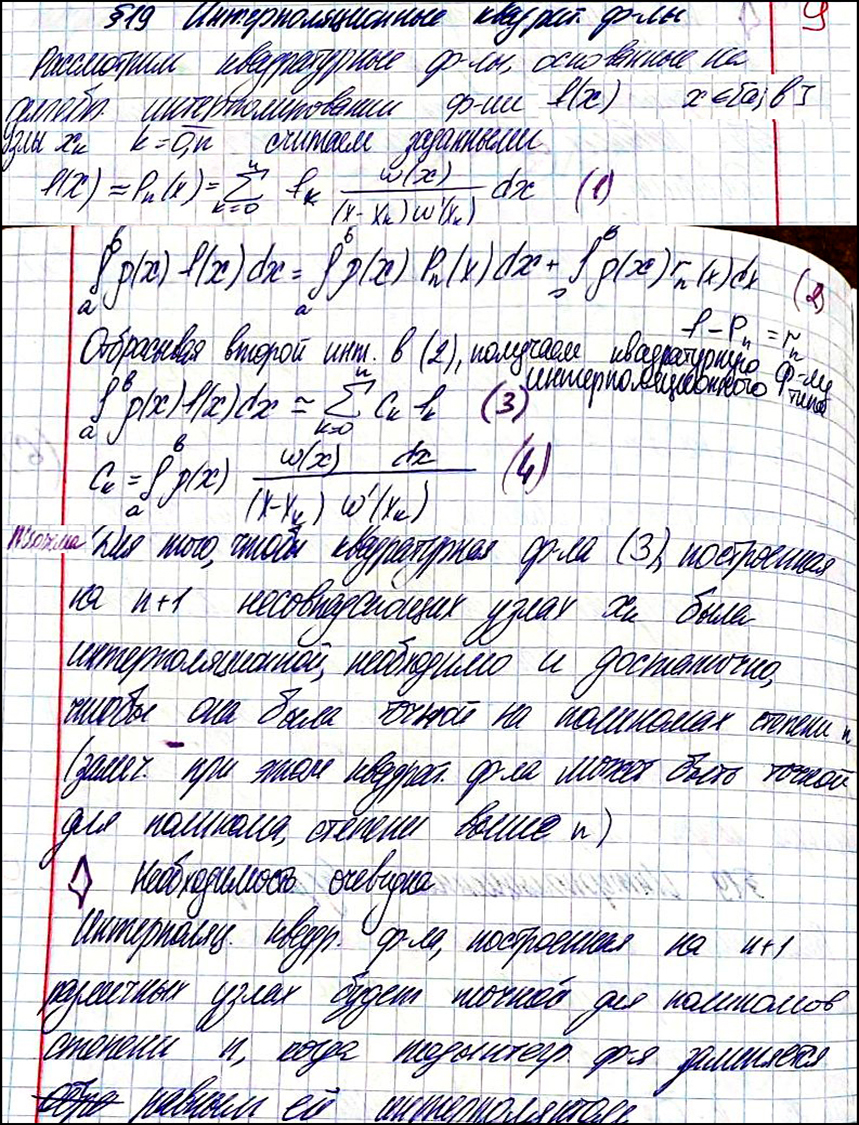 §19 Интерполяционные квадрат. ф-лы 9
Рассмотрим квадратурные ф-лы, основанные на
алгебр. интерполировании ф-ции f(x) x∈[a;b]
Узлы xₖ k=0,n считаем заданными
f(x) ≈ Pₙ(x) = ∑ₖ₌₀ⁿ fₖ ω(x) / ((x-xₖ)ω'(xₖ)) dx (1)
∫ₐᵇ p(x) f(x) dx = ∫ₐᵇ p(x) Pₙ(x) dx + ∫ₐᵇ p(x) rₙ(x) dx (2)
f - Pₙ = rₙ
Отбрасывая второй инт. в (2), получаем квадратурную ф-лу
интерполяционного типа
∫ₐᵇ p(x) f(x) dx ≈ ∑ₖ₌₀ⁿ cₖ fₖ (3)
cₖ = ∫ₐᵇ p(x) ω(x) dx / ((x-xₖ) ω'(xₖ)) (4)
Для того, чтобы квадратурная ф-ла (3), построенная
на n+1 несовпадающих узлах xₖ была
интерполяционной, необходимо и достаточно,
чтобы она была точной на полиномах степени n
(замеч. при этом квадрат. ф-ла может быть точной
для полинома, степени выше n)
◊ Необходимость очевидна
Интерполяц. квадр. ф-ла, построенная на n+1
различных узлах будет точной для полиномов
степени n, когда подынтегр. ф-я заменяется
равным ей интерполянтом